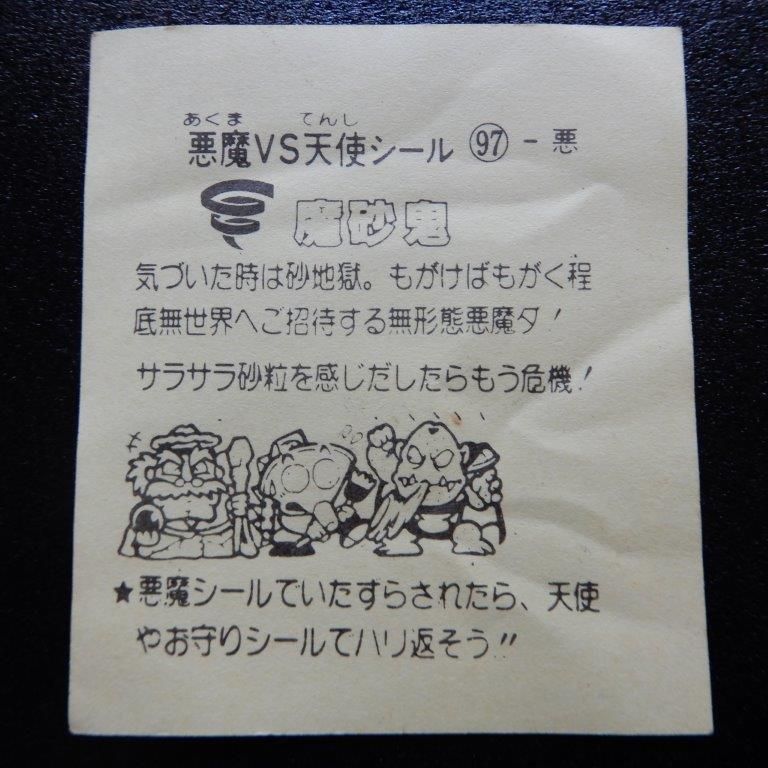 あくま てんし
悪魔VS天使シール 97 - 悪
魔砂鬼
気づいた時は砂地獄。もがけばもがく程
底無世界へご招待する無形態悪魔ダ!
サラサラ砂粒を感じだしたらもう危機!
★悪魔シールでいたずらされたら、天使
やお守りシールでハリ返そう!!